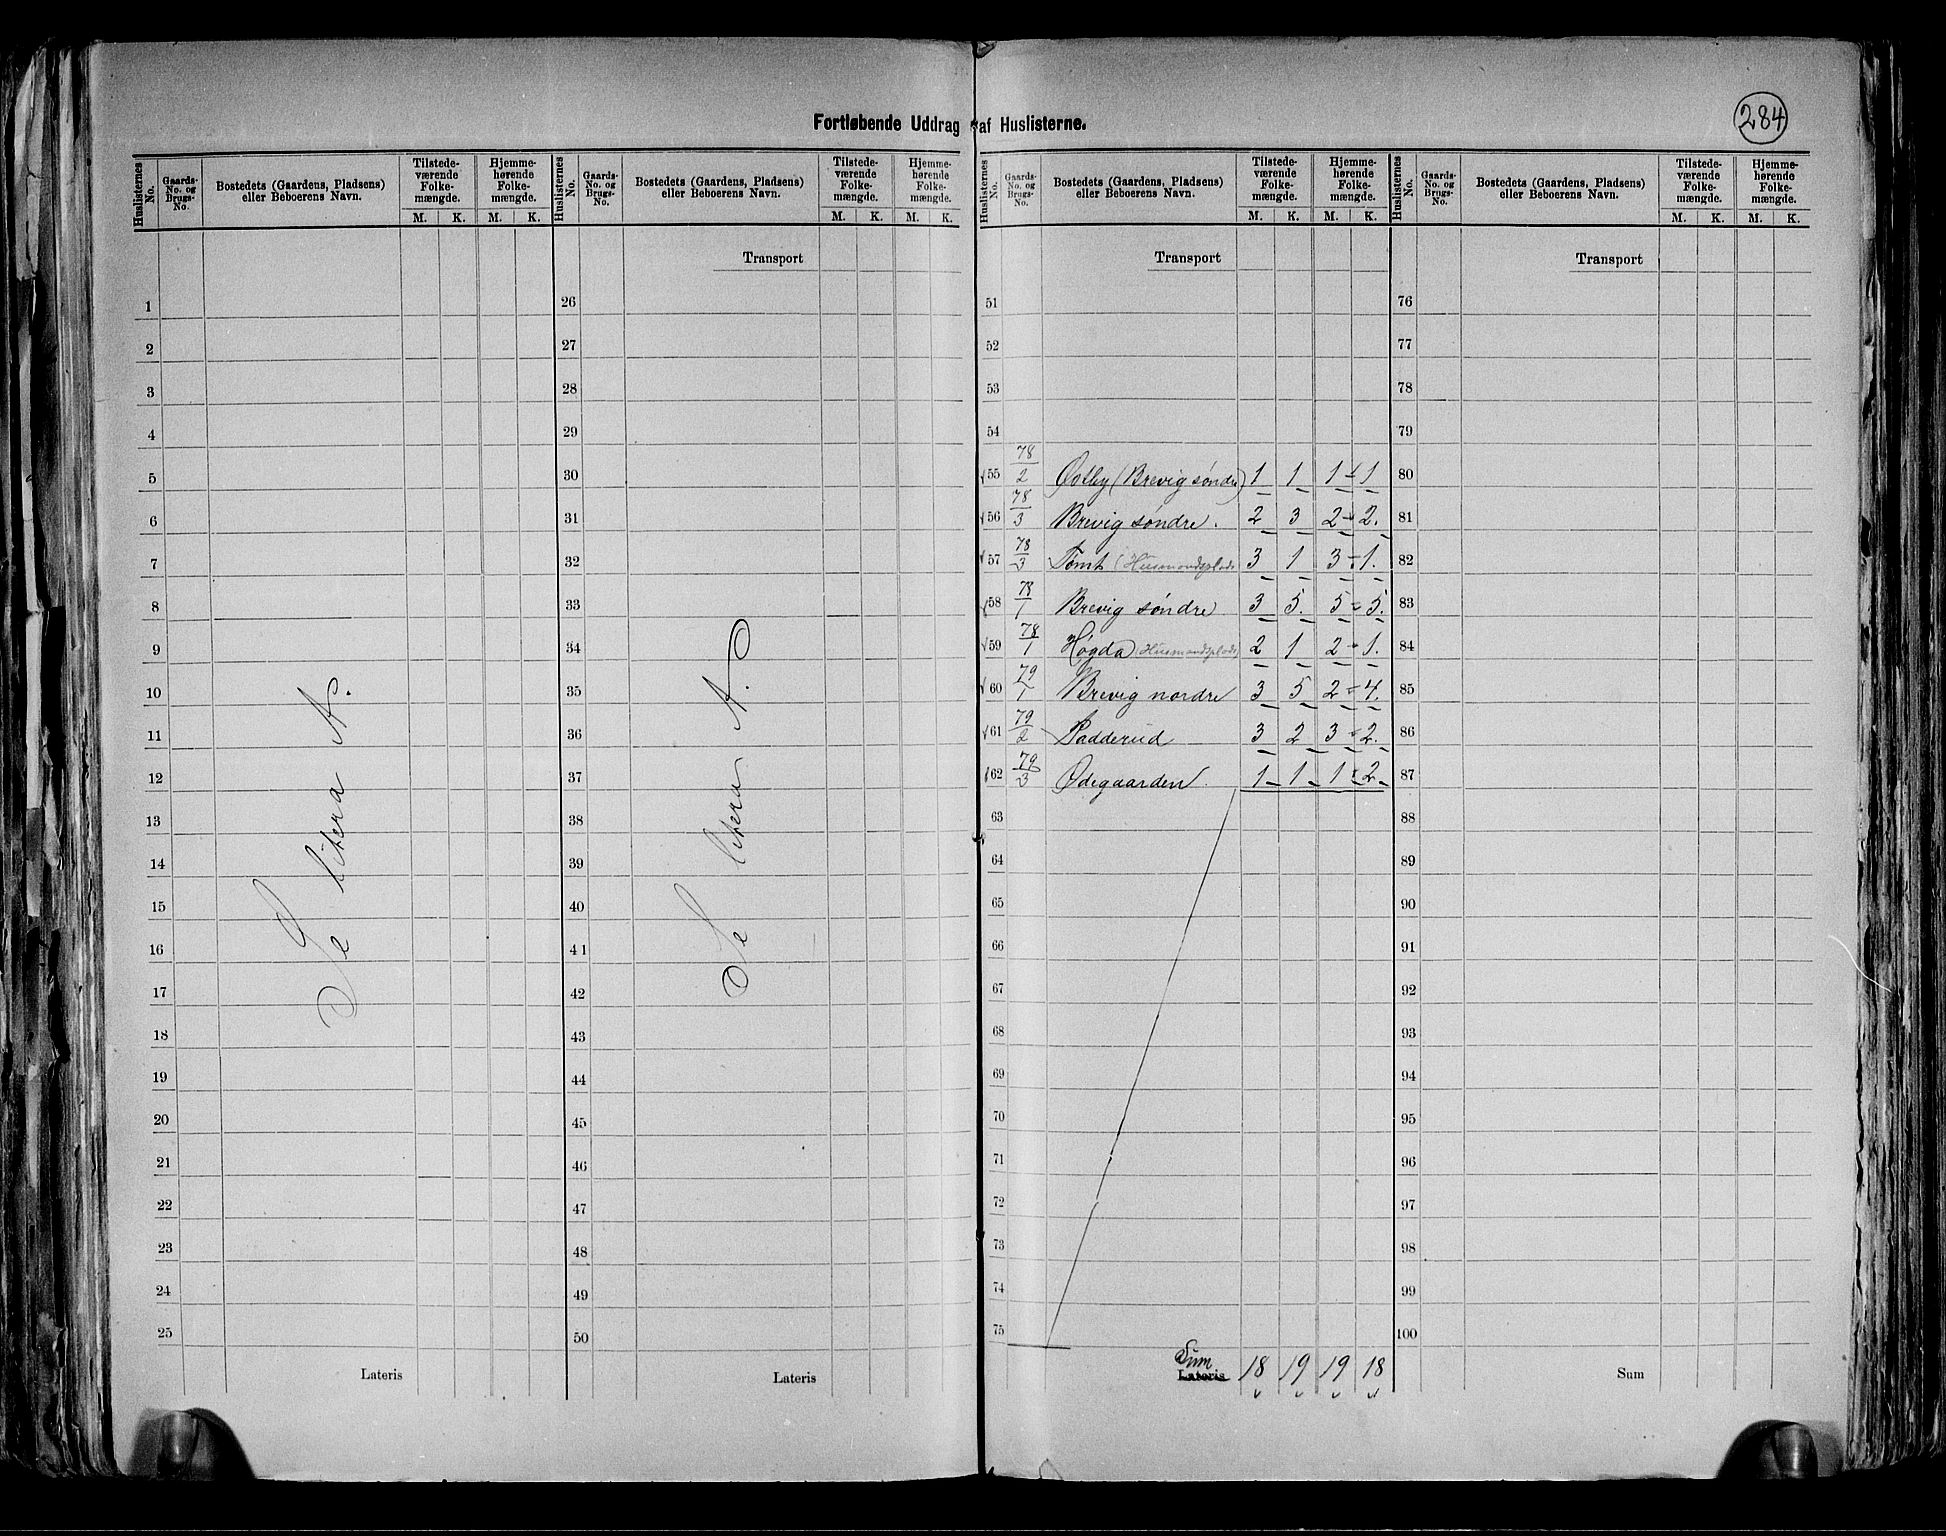 Fortløbende Uddrag af Huslisterne.
284
Huslisternes No.
Gaards-No. og Brugs-No.
Bostedets (Gaardens, Pladsens) eller Beboerens Navn.
Tilstede-værende Folke-mængde.
Hjemme-hørende Folke-mængde.
M. K. M. K.
1
2
3
4
5
6
7
8
9
10
11
12
13
14
15
16
17
18
19
20
21
22
23
24
25
Se litera A.
Lateris
Huslisternes No.
Gaards-No. og Brugs-No.
Bostedets (Gaardens, Pladsens) eller Beboerens Navn.
Tilstede-værende Folke-mængde.
Hjemme-hørende Folke-mængde.
M. K. M. K.
Transport
26
27
28
29
30
31
32
33
34
35
36
37
38
39
40
41
42
43
44
45
46
47
48
49
50
Se litera A.
Lateris
Huslisternes No.
Gaards-No. og Brugs-No.
Bostedets (Gaardens, Pladsens) eller Beboerens Navn.
Tilstede-værende Folke-mængde.
Hjemme-hørende Folke-mængde.
M. K. M. K.
Transport
51
52
53
54
55 78/2 Østby (Brevig søndre) 1 1 1 1
56 78/3 Brevig søndre. 2 3 2 2.
57 78/3 Tomt (Husmandsplads 3 1 3 1.
58 78/1 Brevig søndre 3 5. 5 5.
59 78/1 Høgda (Husmandsplads) 2 1 2 1.
60 79/1 Brevig nordre 3 5 2 4.
61 79/2 Padderud 3 2 3 2.
62 79/3 Ødegaarden 1 1 1 2
63
64
65
66
67
68
69
70
71
72
73
74
75
Sum
Lateris 18 19 19 18
Huslisternes No.
Gaards-No. og Brugs-No.
Bostedets (Gaardens, Pladsens) eller Beboerens Navn.
Tilstede-værende Folke-mængde.
Hjemme-hørende Folke-mængde.
M. K. M. K.
Transport
76
77
78
79
80
81
82
83
84
85
86
87
88
89
90
91
92
93
94
95
96
97
98
99
100
Sum